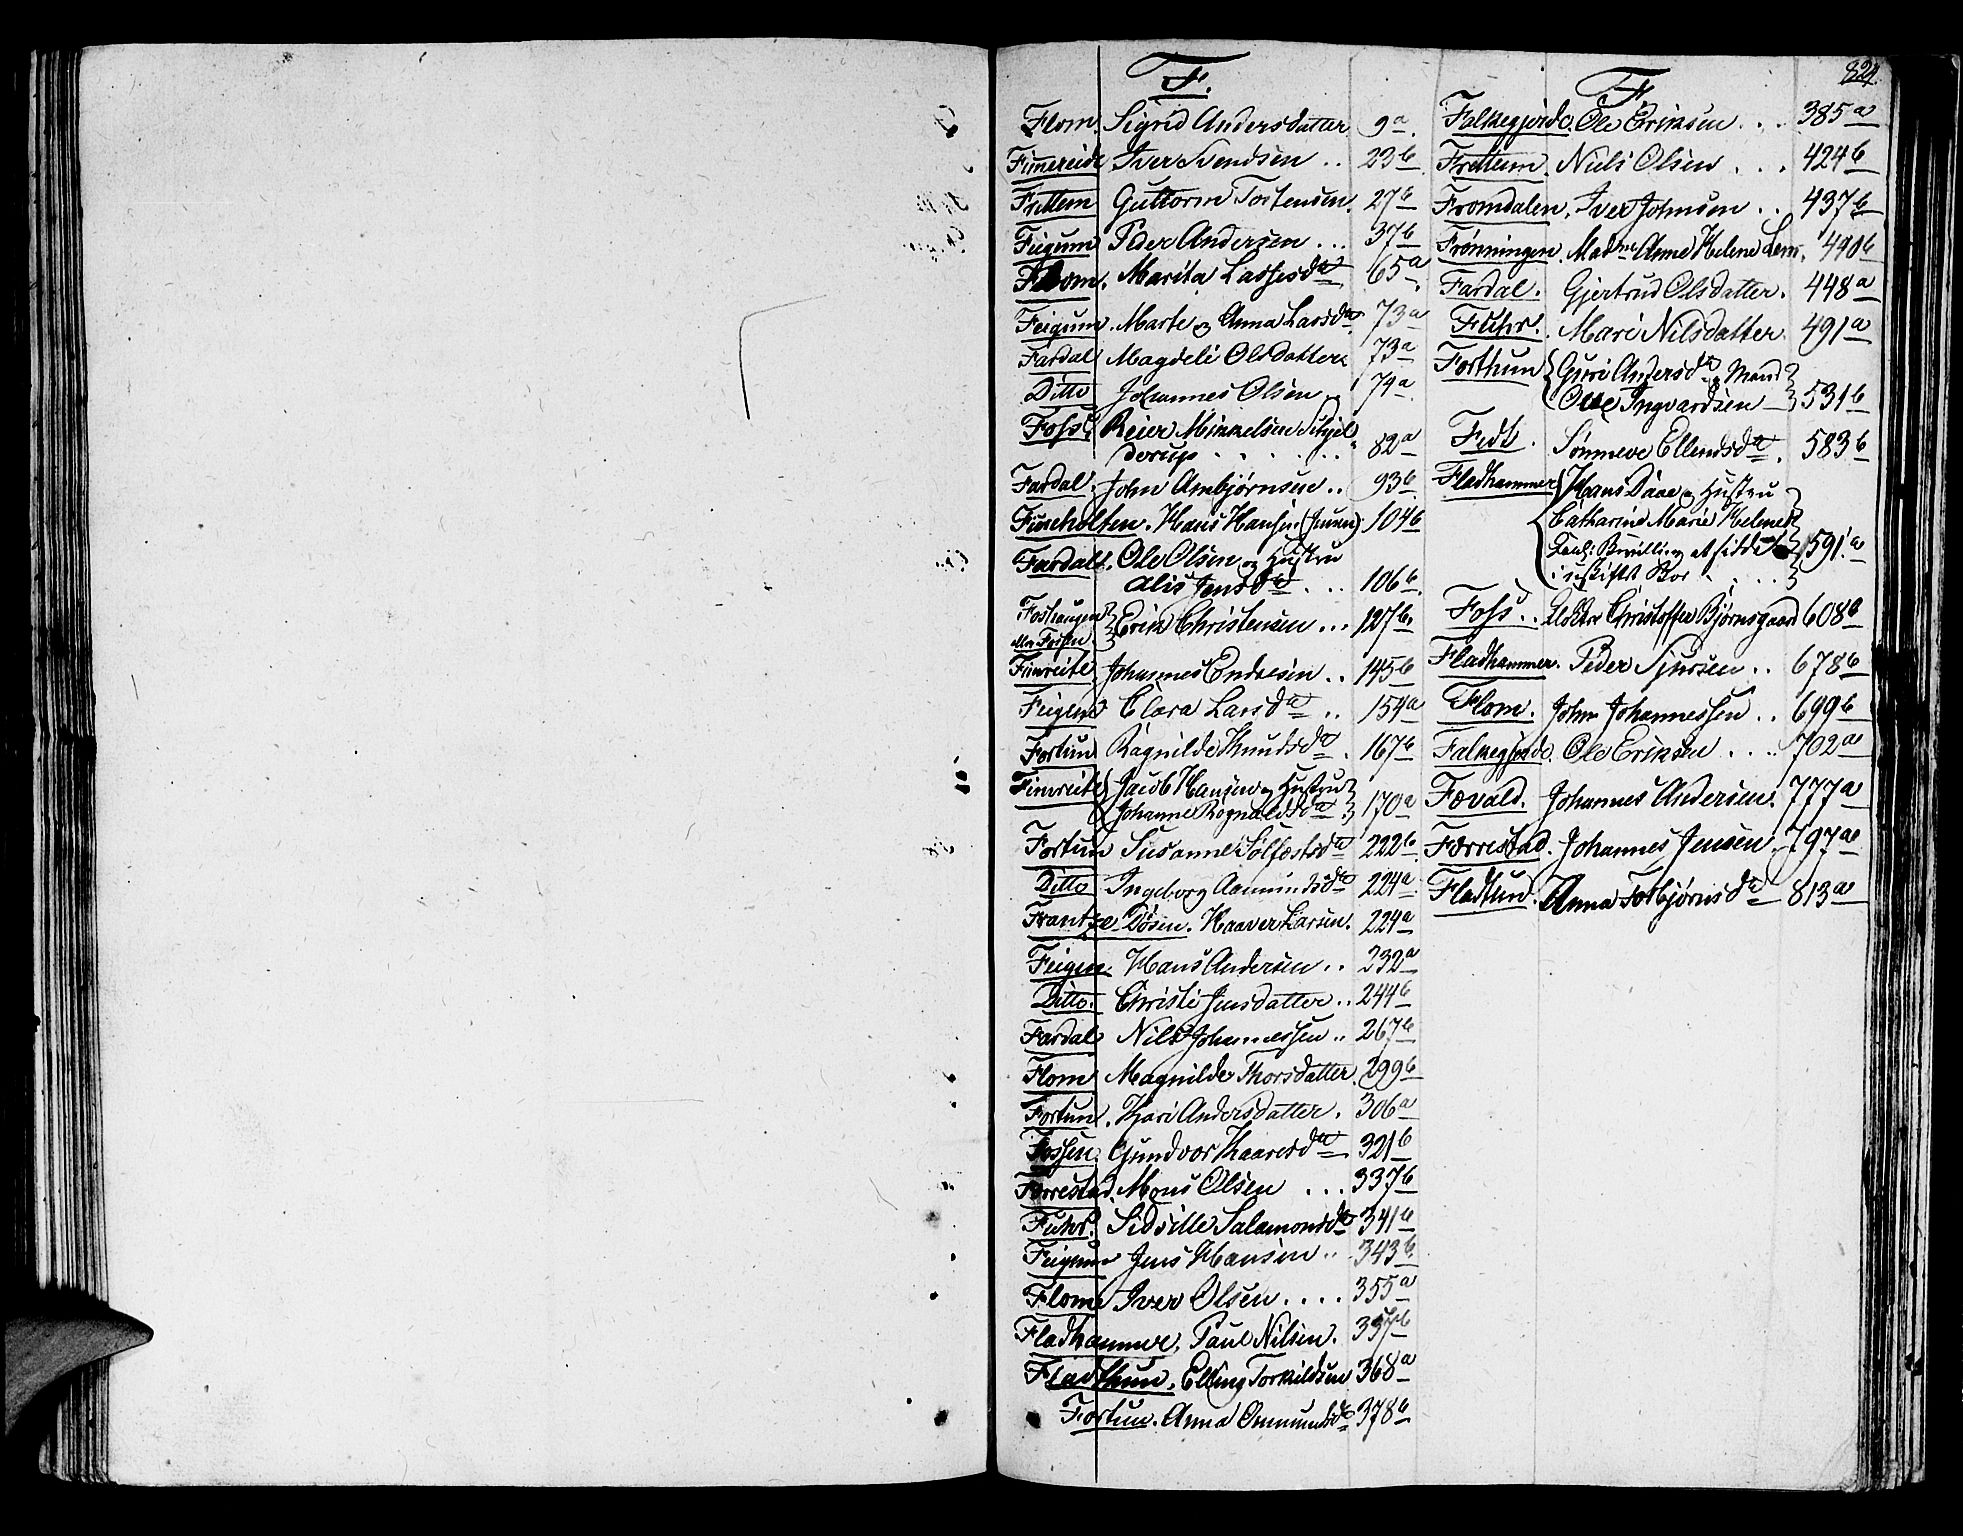 F.
Flom. Sigrid Andersdatter 9a.
Fimreide Iver Svendsen .. 23b
Frettem Guttorm Tostensen. 27b
Feigum Peder Andersen ... 37b
Flom. Marita Lassesda 65a
Feigum. Marte og Anna Larsda. 73a
Fardal Magdeli Olsdatter. 73a
Ditto Johannes Olsen 74a
Foss. Reier Mikkelsen Schjel-
derup . . . . . . 82a
Fardal. John Ambjørnsen .. 93b
Fimeholten. Hans Hansen (Junior) 104b
Fardal. Ole Olsen og Hustru
Alis Jensda . . . 106b.
Foshaugen
eller Fossen Erik Christensen ... 127b.
Fimreite. Johannes Endresen .. 145b
Feigem Clara Larsda .. 154a
Fortun Ragnilde Knudsda . 167b
Fimreite Jacob Hansen og Hustru
Johanne Rognaldsda 170a
Fortun Susanne Solfestsda 222b
Ditto Ingeborg Aamundsda 224a.
Frantze-Døsen. Haaver Larsen. 224a
Feigen Hans Andersen .. 232a
Ditto. Christi Jensdatter .. 244b
Fardal Nils Johannessen .. 267b
Flom Magnilde Thorsdatter. 299b
Fortun. Kari Andersdatter. 306a
Fossen. Gundvor Haaresda 321b
Forrestad. Mons Olsen ... 337b
Fuhr. Sidsille Salamonsda 341b
Feigum Jens Hansen .. 343b
Flom Iver Olsen .... 355a
Fladhammer. Paul Nilsen. 357b
Fladthun. Elling Torkildsen 368a
Fortun. Anna Ommundsda 378b
F
824.
Falkegjerde. Ole Eriksen ... 385a
Frettem. Niels Olsen ... 424b
Fromdalen. Iver Johnsen .. 437b
Frønningen. Madme Anne Helene Lem. 440b
Fardal. Gjertrud Olsdatter. 448a
Fuhr. Mari Nilsdatter. 491a
Forthun Guri Andersda og Mand
Ole Ingvardsen 531b
Fedt. Sønneve Ellendsda. 583b
Fladhammer Hans Daae og Hustru
Catharine Marie Helenes
Bevilling at sidde
i uskiftet Boe . . . . 591.a
Foss .. Klokker Christoffer Bjørnsgaard 608b
Fladhammer. Peder Sjursen .. 678b
Flom. John Johannessen .. 699b
Falkegjerde. Ole Eriksen .... 702a
Fovald. Johannes Andersen. 777a
Forrestad. Johannes Jensen. 797a
Fladtun. Anna Torbjørnsda 813a